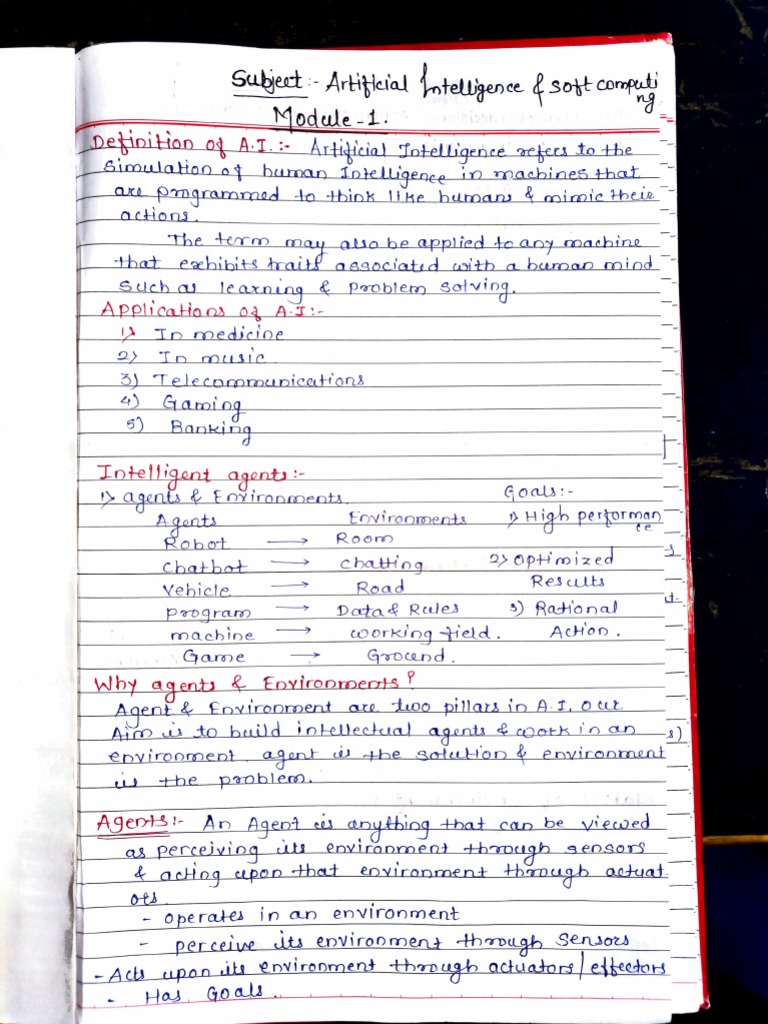 Subject :- Artificial Intelligence & soft computi
ng
Module - 1.
Definition of A.I. :- Artificial Intelligence refers to the
Simulation of human Intelligence in machines that
are programmed to think like humans & mimic their
actions.
The term may also be applied to any machine
that exhibits traits associated with a human mind
such as learning & problem solving.
Applications of A.I :-
1) In medicine
2) In music
3) Telecommunications
4) Gaming
5) Banking
Intelligent agents :-
1) agents & Environments. Goals :-
Agents Environments 1) High performan
ce
Robot → Room
Chatbot → chatting 2) Optimized
Vehicle → Road Results
program → Data & Rules 3) Rational
machine → working field. Action.
Game → Ground.
Why agents & Environments?
Agent & Environment are two pillars in A.I. our
Aim is to build intellectual agents & work in an
environment. agent is the solution & environment
is the problem.
Agents :- An Agent is anything that can be viewed
as perceiving its environment through sensors
& acting upon that environment through actuat
ors.
- operates in an environment
- perceive its environment through Sensors
- Acts upon its environment through actuators/effectors
- Has Goals.